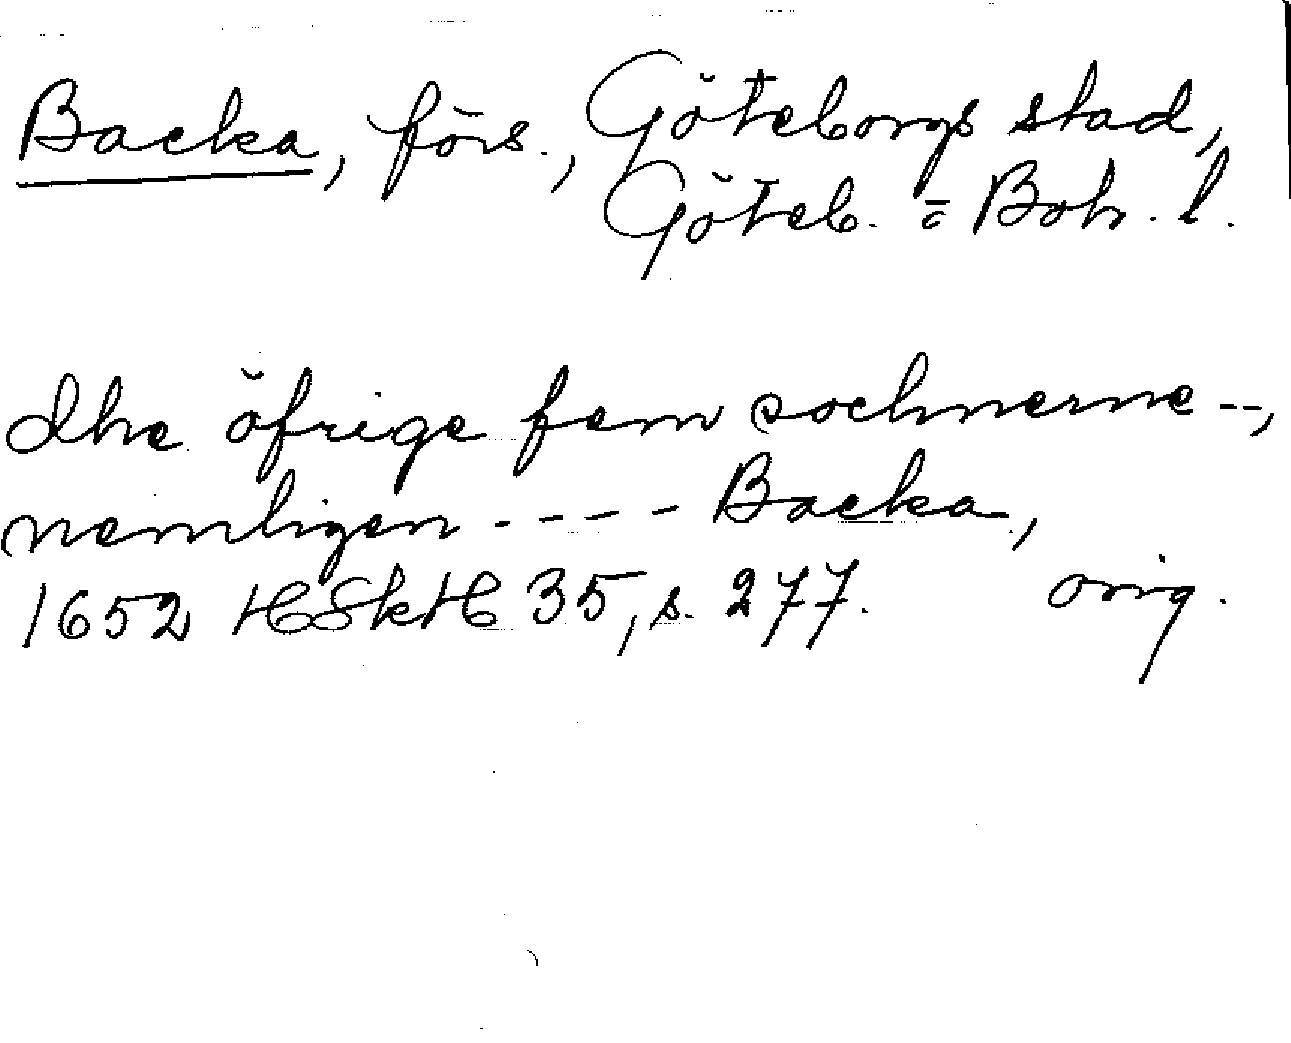 Backa, förs., Göteborgs stad,
Göteb. o Boh. l.
dhe öfrige fem sochnerne --,
nemligen ---- Backa,
1652 HSkH 35, s. 277. orig.